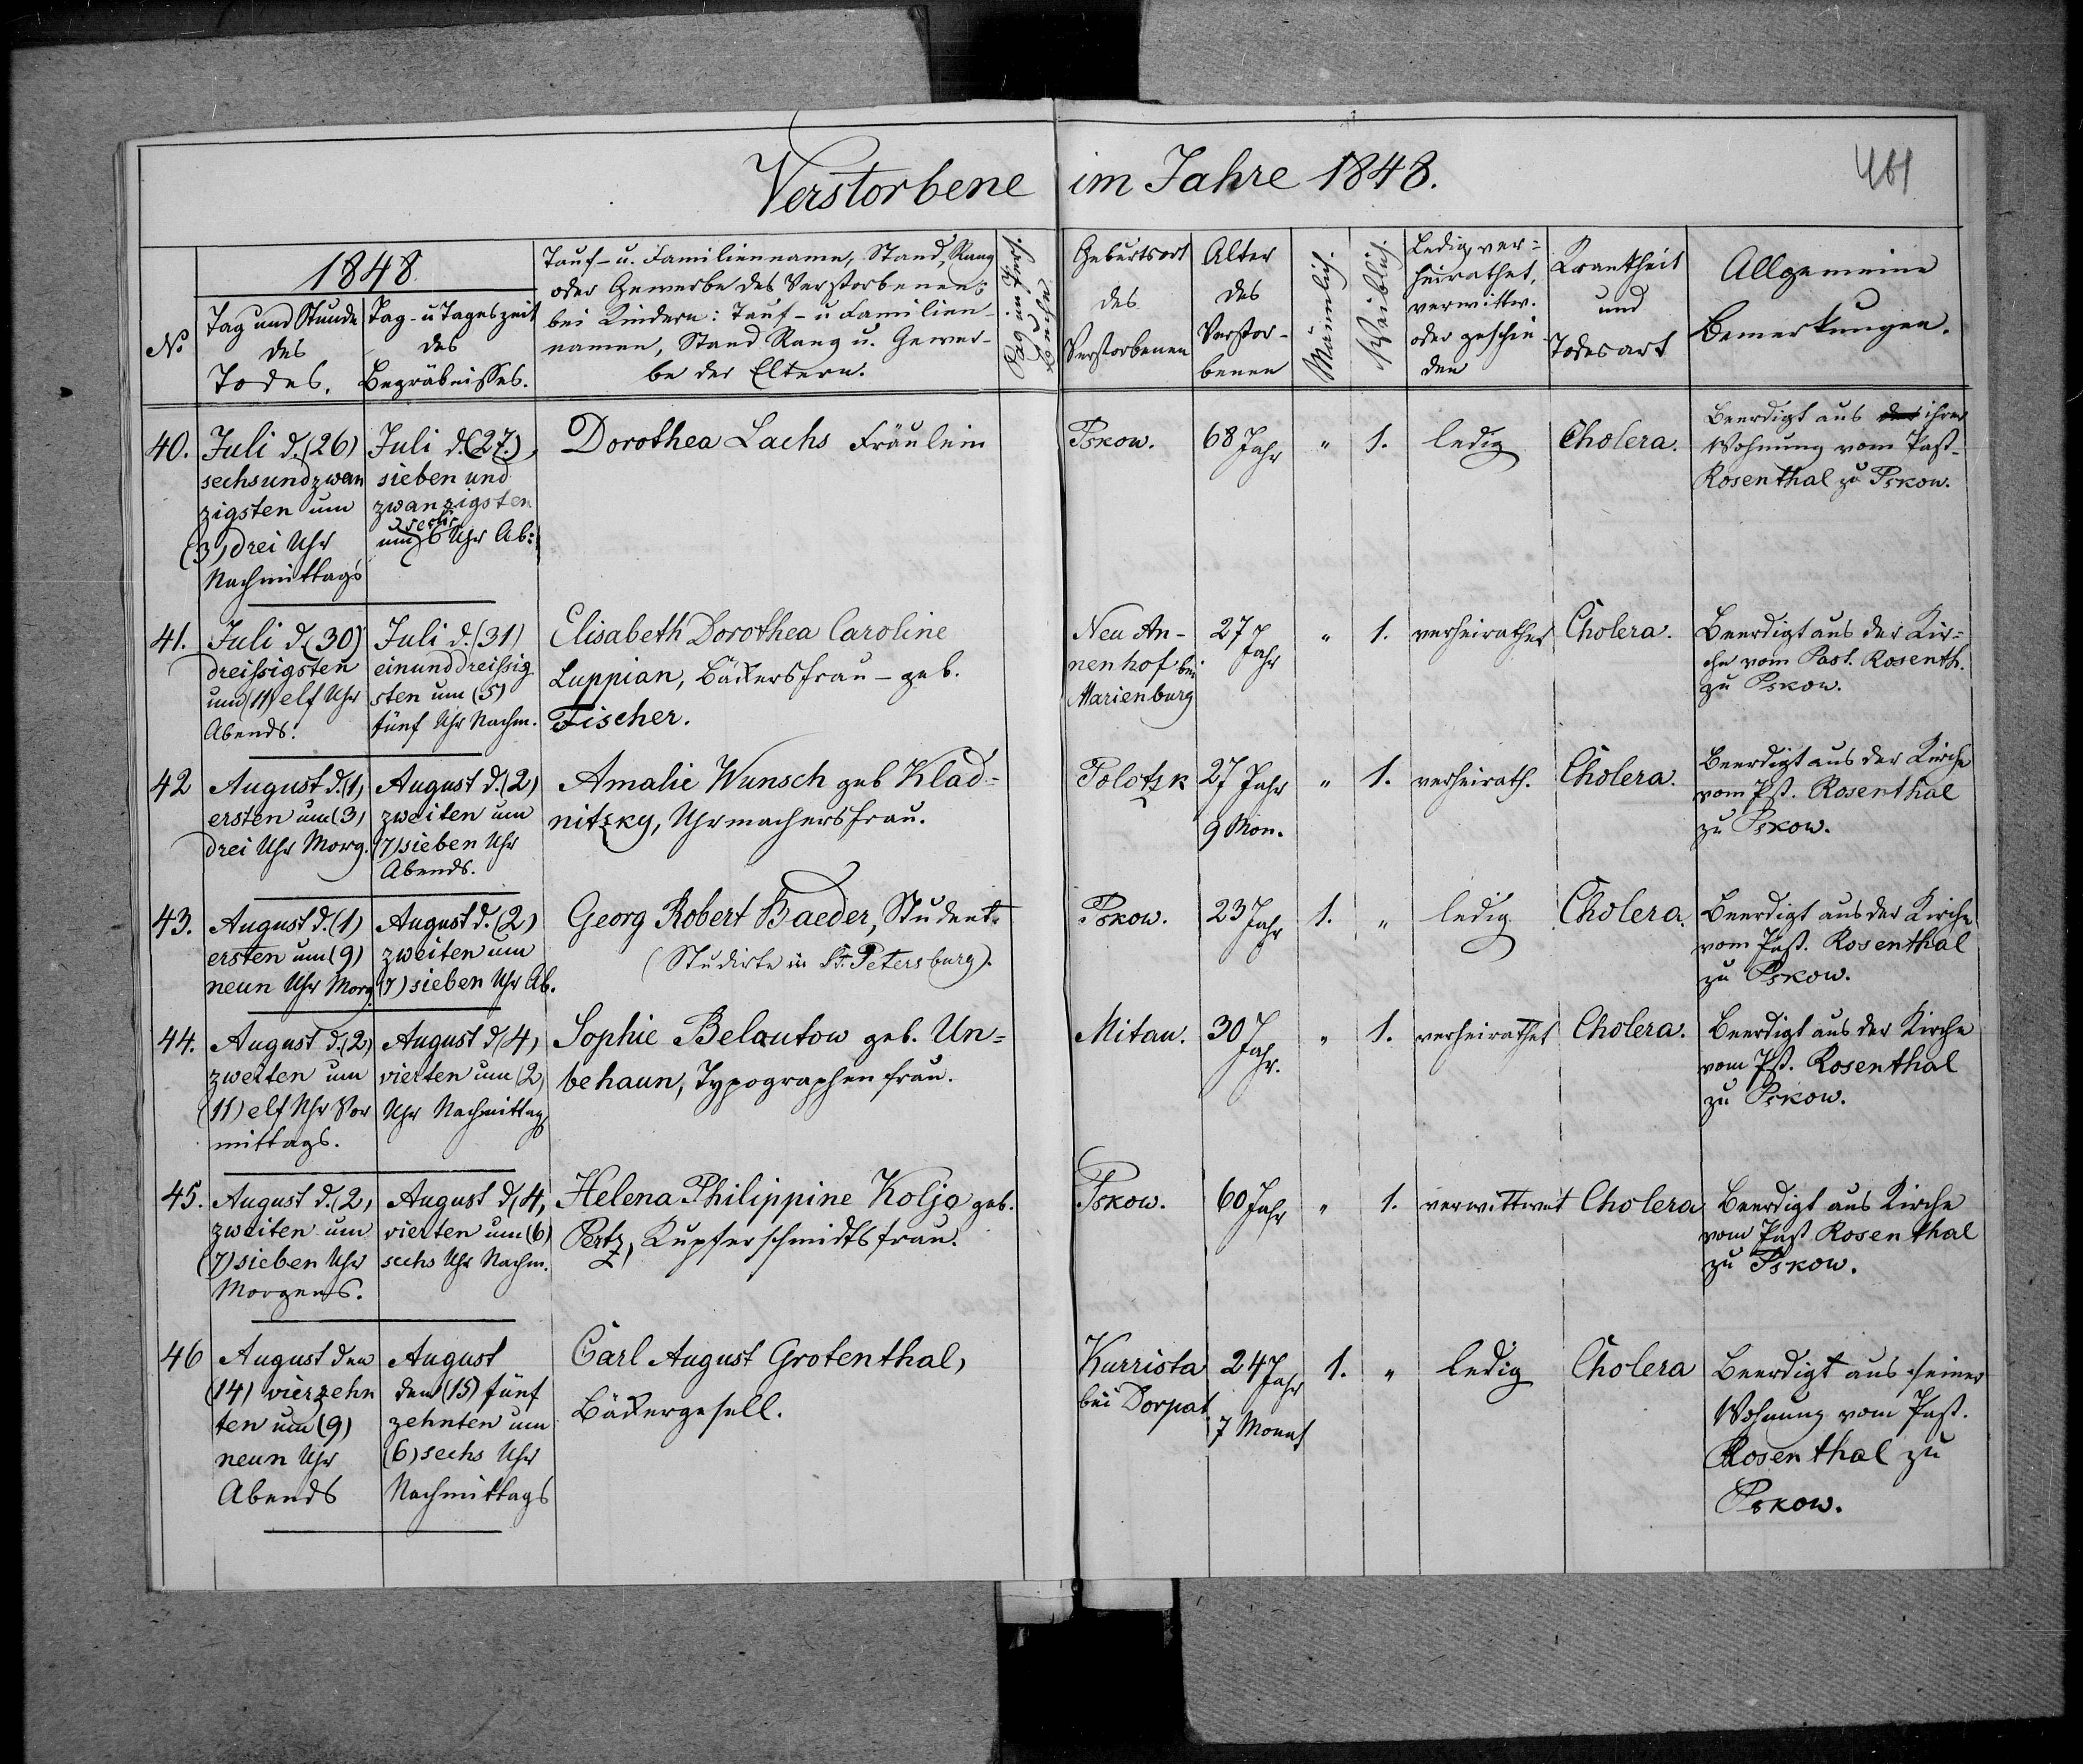 Verstorbene im Jahre 1848.
461
1848.
No
Tag und Stunde
des
Todes.
Tag- u Tageszeit
des
Begräbnisses.
Tauf- u. Familienname, Stand, Rang
oder Gewerbe des Verstorbenen;
bei Kindern: Tauf- u Familien-
namen, Stand Rang u. Gewer-
be der Eltern.
Geburtsort
des
Verstorbenen
Alter
des
Verstor-
benen
Männlich.
Weiblich.
Ledig, ver-
heirathet,
verwittw.
oder geschie
den
Krankheit
und
Todesart
Allgemeine
Bemerkungen.
40.
Juli d. (26)
sechsundzwan
zigsten um
(3) drei Uhr
Nachmittags
Juli d. (27.)
sieben und
zwanzigsten
sechs
um 6 Uhr Ab:
Dorothea Lachs Fräulein
Pskow.
68 Jahr
"
1.
ledig
Cholera.
Beerdigt aus der ihrer
Wohnung vom Past-
Rosenthal zu Pskow.
41.
Juli d. (30)
dreißigsten
um (11) elf Uhr
Abends.
Juli d. (31)
einunddreißig
sten um (5)
fünf Uhr Nachm.
Elisabeth Dorothea Caroline
Luppian, Bäckersfrau - geb.
Fischer.
Neu An-
nenhof bei
Marienburg
27 Jahr
"
1.
verheirathet
Cholera.
Beerdigt aus der Kir-
che vom Past. Rosenth.
zu Pskow.
42
August d. (1)
ersten um (3)
drei Uhr Morg.
August d. (2)
zweiten um
(7) sieben Uhr
Abends.
Amalie Wunsch geb Klad-
nitzky, Uhrmachersfrau.
Polotzk
27 Jahr
9 Mon.
"
1.
verheirath.
Cholera.
Beerdigt aus der Kirche
vom Pst. Rosenthal
zu Pskow.
43.
August d. (1)
ersten um (9)
neun Uhr Morg.
August d. (2)
zweiten um
(7) sieben Uhr Ab.
Georg Robert Baeder, Student.
(Studirte in St. Petersburg).
Pskow.
23 Jahr
1.
"
ledig
Cholera.
Beerdigt aus der Kirche
vom Past. Rosenthal
zu Pskow.
44.
August d. (2)
zweiten um
(11) elf Uhr Vor
mittags.
August d. (4)
vierten um (2)
Uhr Nachmittag
Sophie Belautow geb. Un-
behaun, Typographenfrau.
Mitau.
30 Jahr.
"
1.
verheirathet
Cholera.
Beerdigt aus der Kirche
vom Pst. Rosenthal
zu Pskow.
45.
August d. (2)
zweiten um
(7) sieben Uhr
Morgens.
August d. (4)
vierten um (6)
sechs Uhr Nachm.
Helena Philippine Koljo geb.
Pertz, Kupferschmidtsfrau.
Pskow.
60 Jahr
"
1.
verwittwet
Cholera
Beerdigt aus Kirche
vom Past Rosenthal
zu Pskow.
46
August den
(14) vierzehn
ten um (9)
neun Uhr
Abends
August
den (15) fünf
zehnten um
(6) sechs Uhr
Nachmittags
Carl August Grotenthal,
Bäckergesell.
Kurrista
bei Dorpat
24 Jahr
7 Monat
1.
"
ledig
Cholera
Beerdigt aus seiner
Wohnung vom Past.
Rosenthal zu
Pskow.